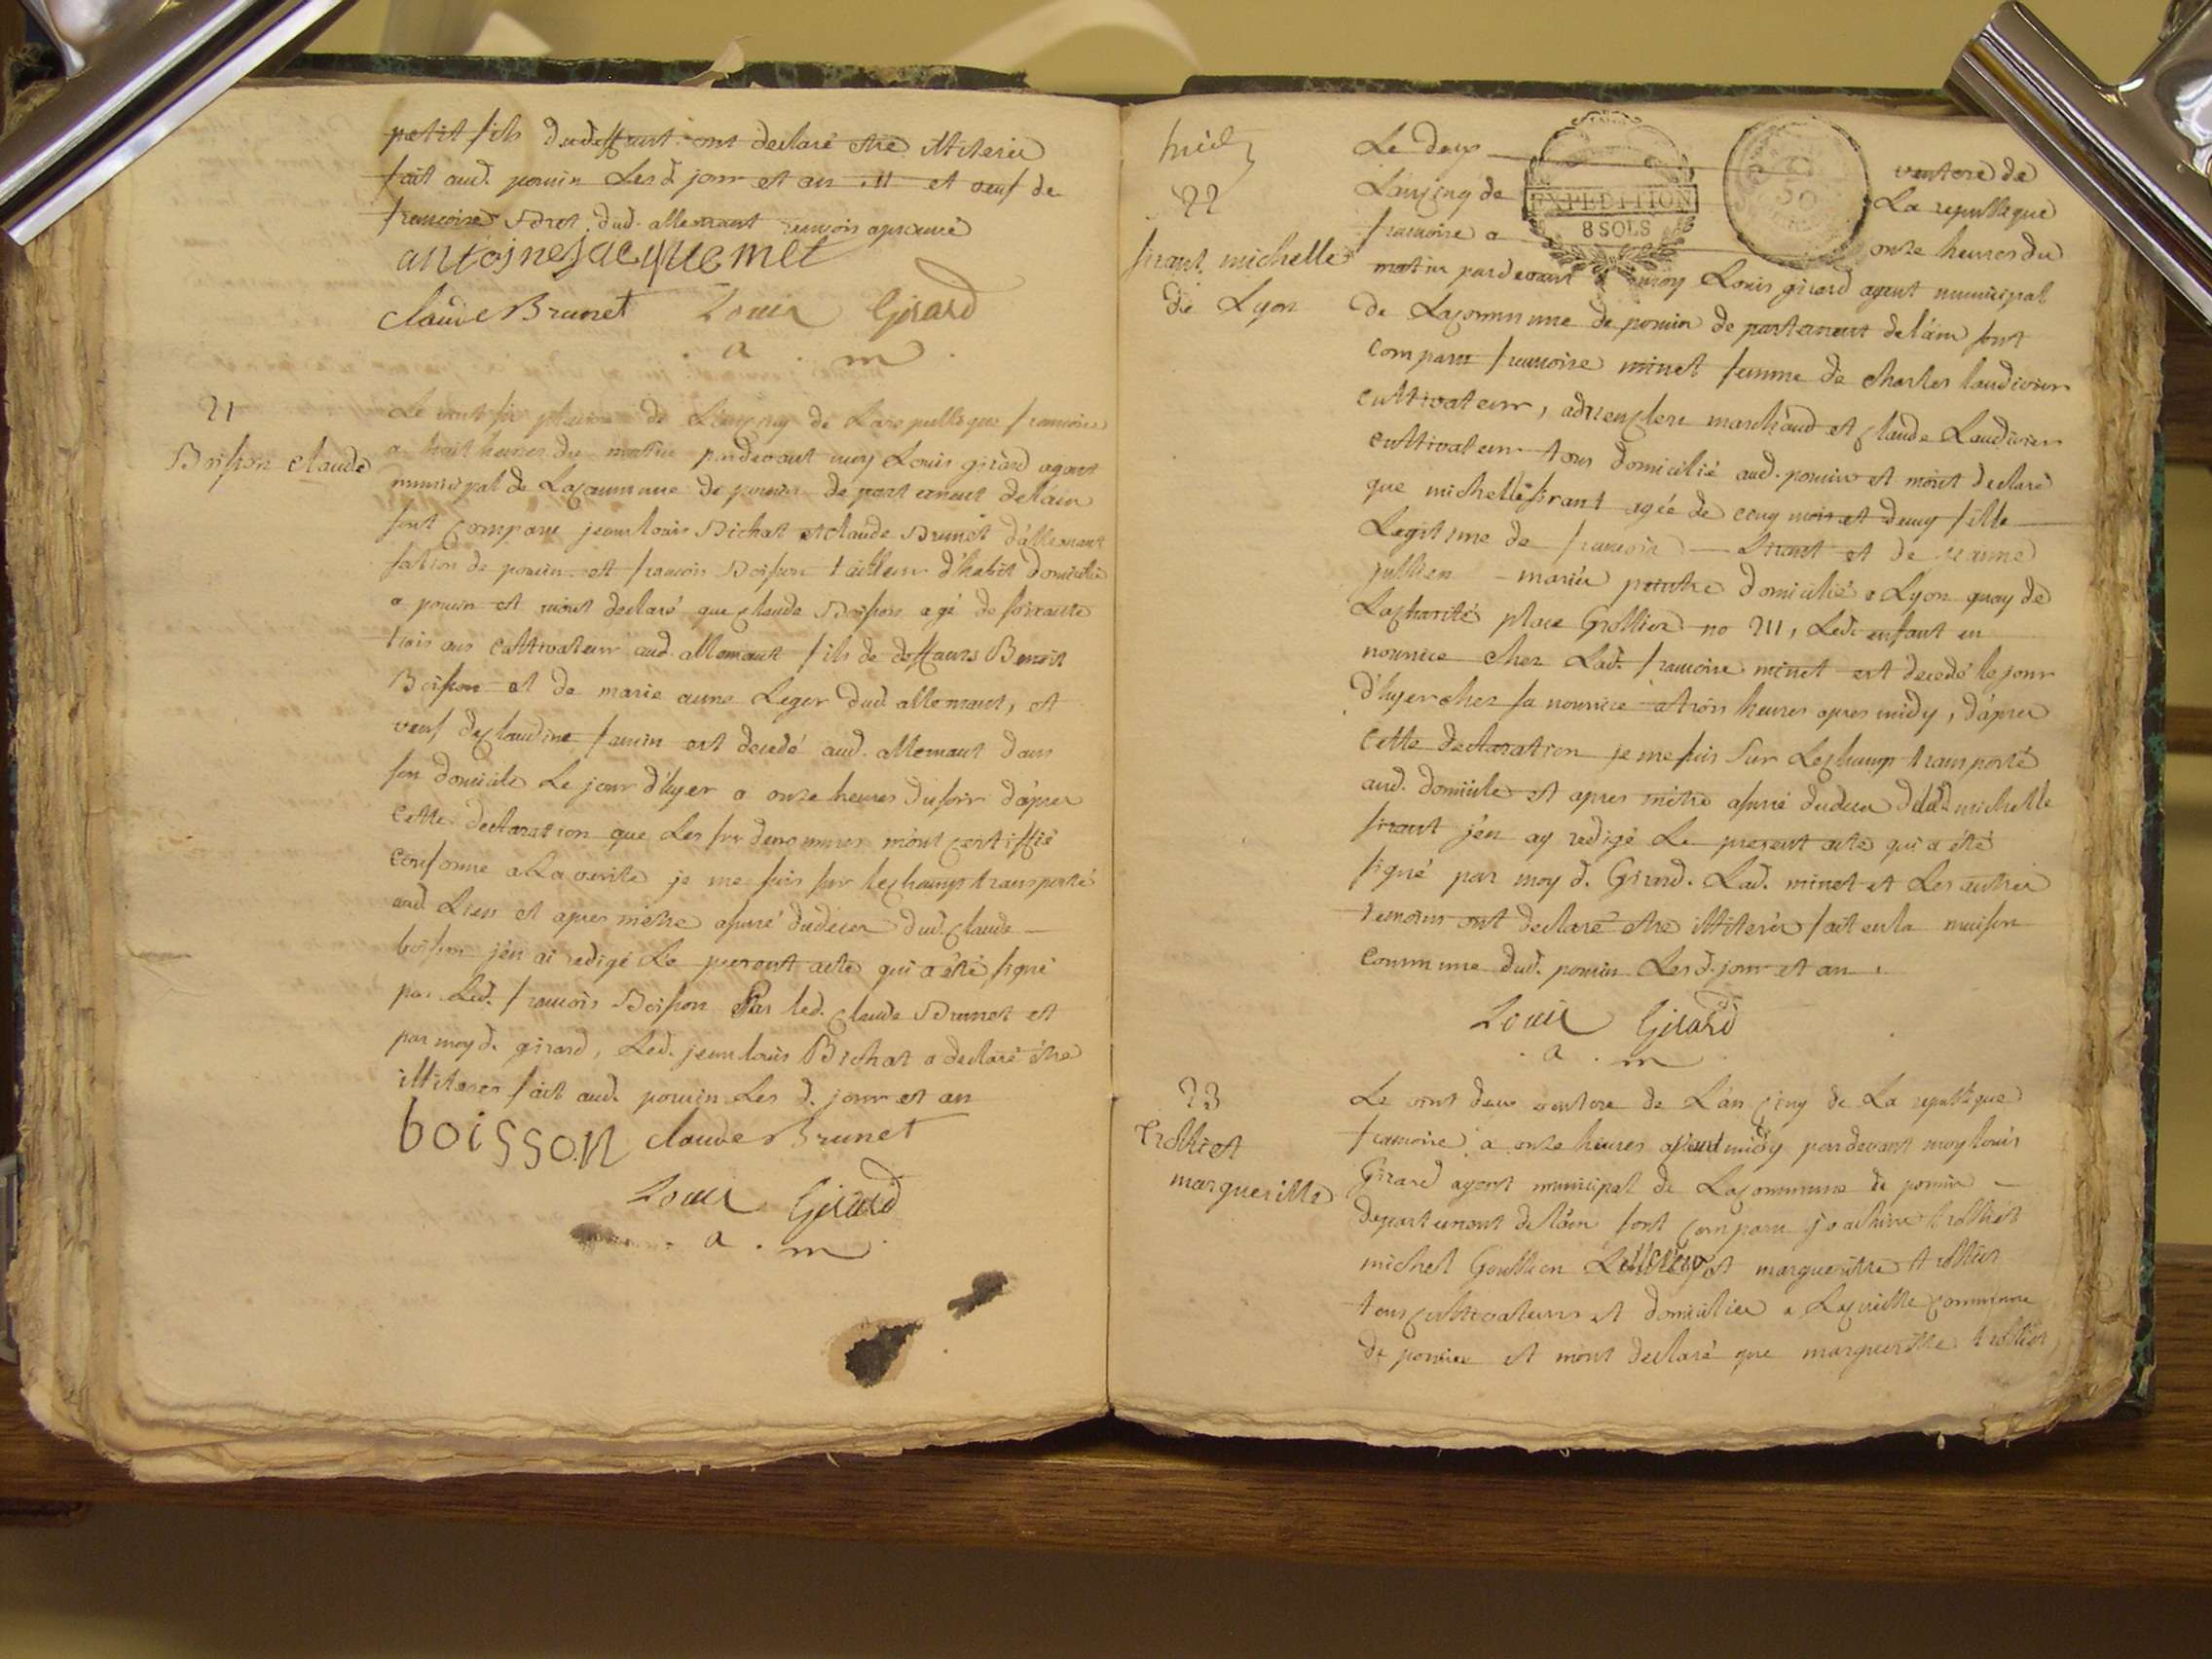 petit fils dud deffunt ont declaré etre illiterée
fait aud. poncin Les d jour et an et veuf de
francoise dud. allemant renvois aprouvé
antoine jacquemet
claude Brunet Louis Girard
a . m .
21
Boisson claude
Le vint six pluviose de L'an cinq de La republique francoise
a huit heures du matin pardevant moy Louis girard agent
municipal de La commune de poncin departement de l'ain
sont comparu jean louis Bichat et claude Brunet d'allemant
section de poncin et francois Boisson tailleur d'habit domicilié
a poncin et m'ont declaré que claude Boisson agé de soixante
trois ans cultivateur aud. allemant fils de deffunts Benoit
Boisson et de marie anne Leger dud. allemant, et
veuf de claudine est decedé aud. allemant dans
son domicile Le jour d'hyer a onze heures du soir d'apres
cette declaration que Les sus denommés m'ont certiffié
conforme a La verité je me suis sur le champ transporté
aud Lieu et apres m'etre assuré du deces dud. claude
boisson j'en ai redigé Le present acte qui a été signé
par Led. francois Boisson Par led. claude Brunet et
par moy d. girard, Led. jean louis Bichat a declaré être
illiteré fait aud. poncin Les d. jour et an
boisson claude Brunet
Louis Girard
a . m .
22
sirant michelle
de Lyon
Le deux ventose de
L'an cinq de La republique
EXPEDITION
8 SOLS
francoise a onze heures du
matin pardevant moy Louis girard agent municipal
de La commune de poncin departement de l'ain sont
comparu francoise minet femme de charles laudivier
cultivateur, marchand et claude Laudivier
cultivateur tous domicilié aud. poncin et m'ont declaré
que michelle sirant agée de cinq mois et demy fille
Legitime de francois Sirant et de jeanne
jullien mariés peintre domicilié a Lyon quay de
La charité place Grollier no 211, Led. enfant en
nourrice chez Lad. francoise minet est decedé le jour
d'hyer chez sa nourrice a trois heures apres midy, d'apres
cette declaration je me suis sur Le champ transporté
aud. domicile et apres m'etre assuré du deces de lad. michelle
sirant j'en ay redigé Le present acte qui a été
signé par moy d. Girard. Lad. minet et Les autres
temoins ont declaré etre illiterés fait en la maison
commune dud. poncin Les d. jour et an .
Louis Girard
. a . m
23
Trolliet
margueritte
Le vint deux ventose de L'an cinq de La republique
francoise a onze heures avant midy pardevant moy louis
Girard agent municipal de La commune de poncin
departement de l'ain sont comparu joachim trolliet
michel Goullion et margueritte trolliet
tous cultivateurs et domiciliés a La commune
de poncin et m'ont declaré que margueritte trolliet